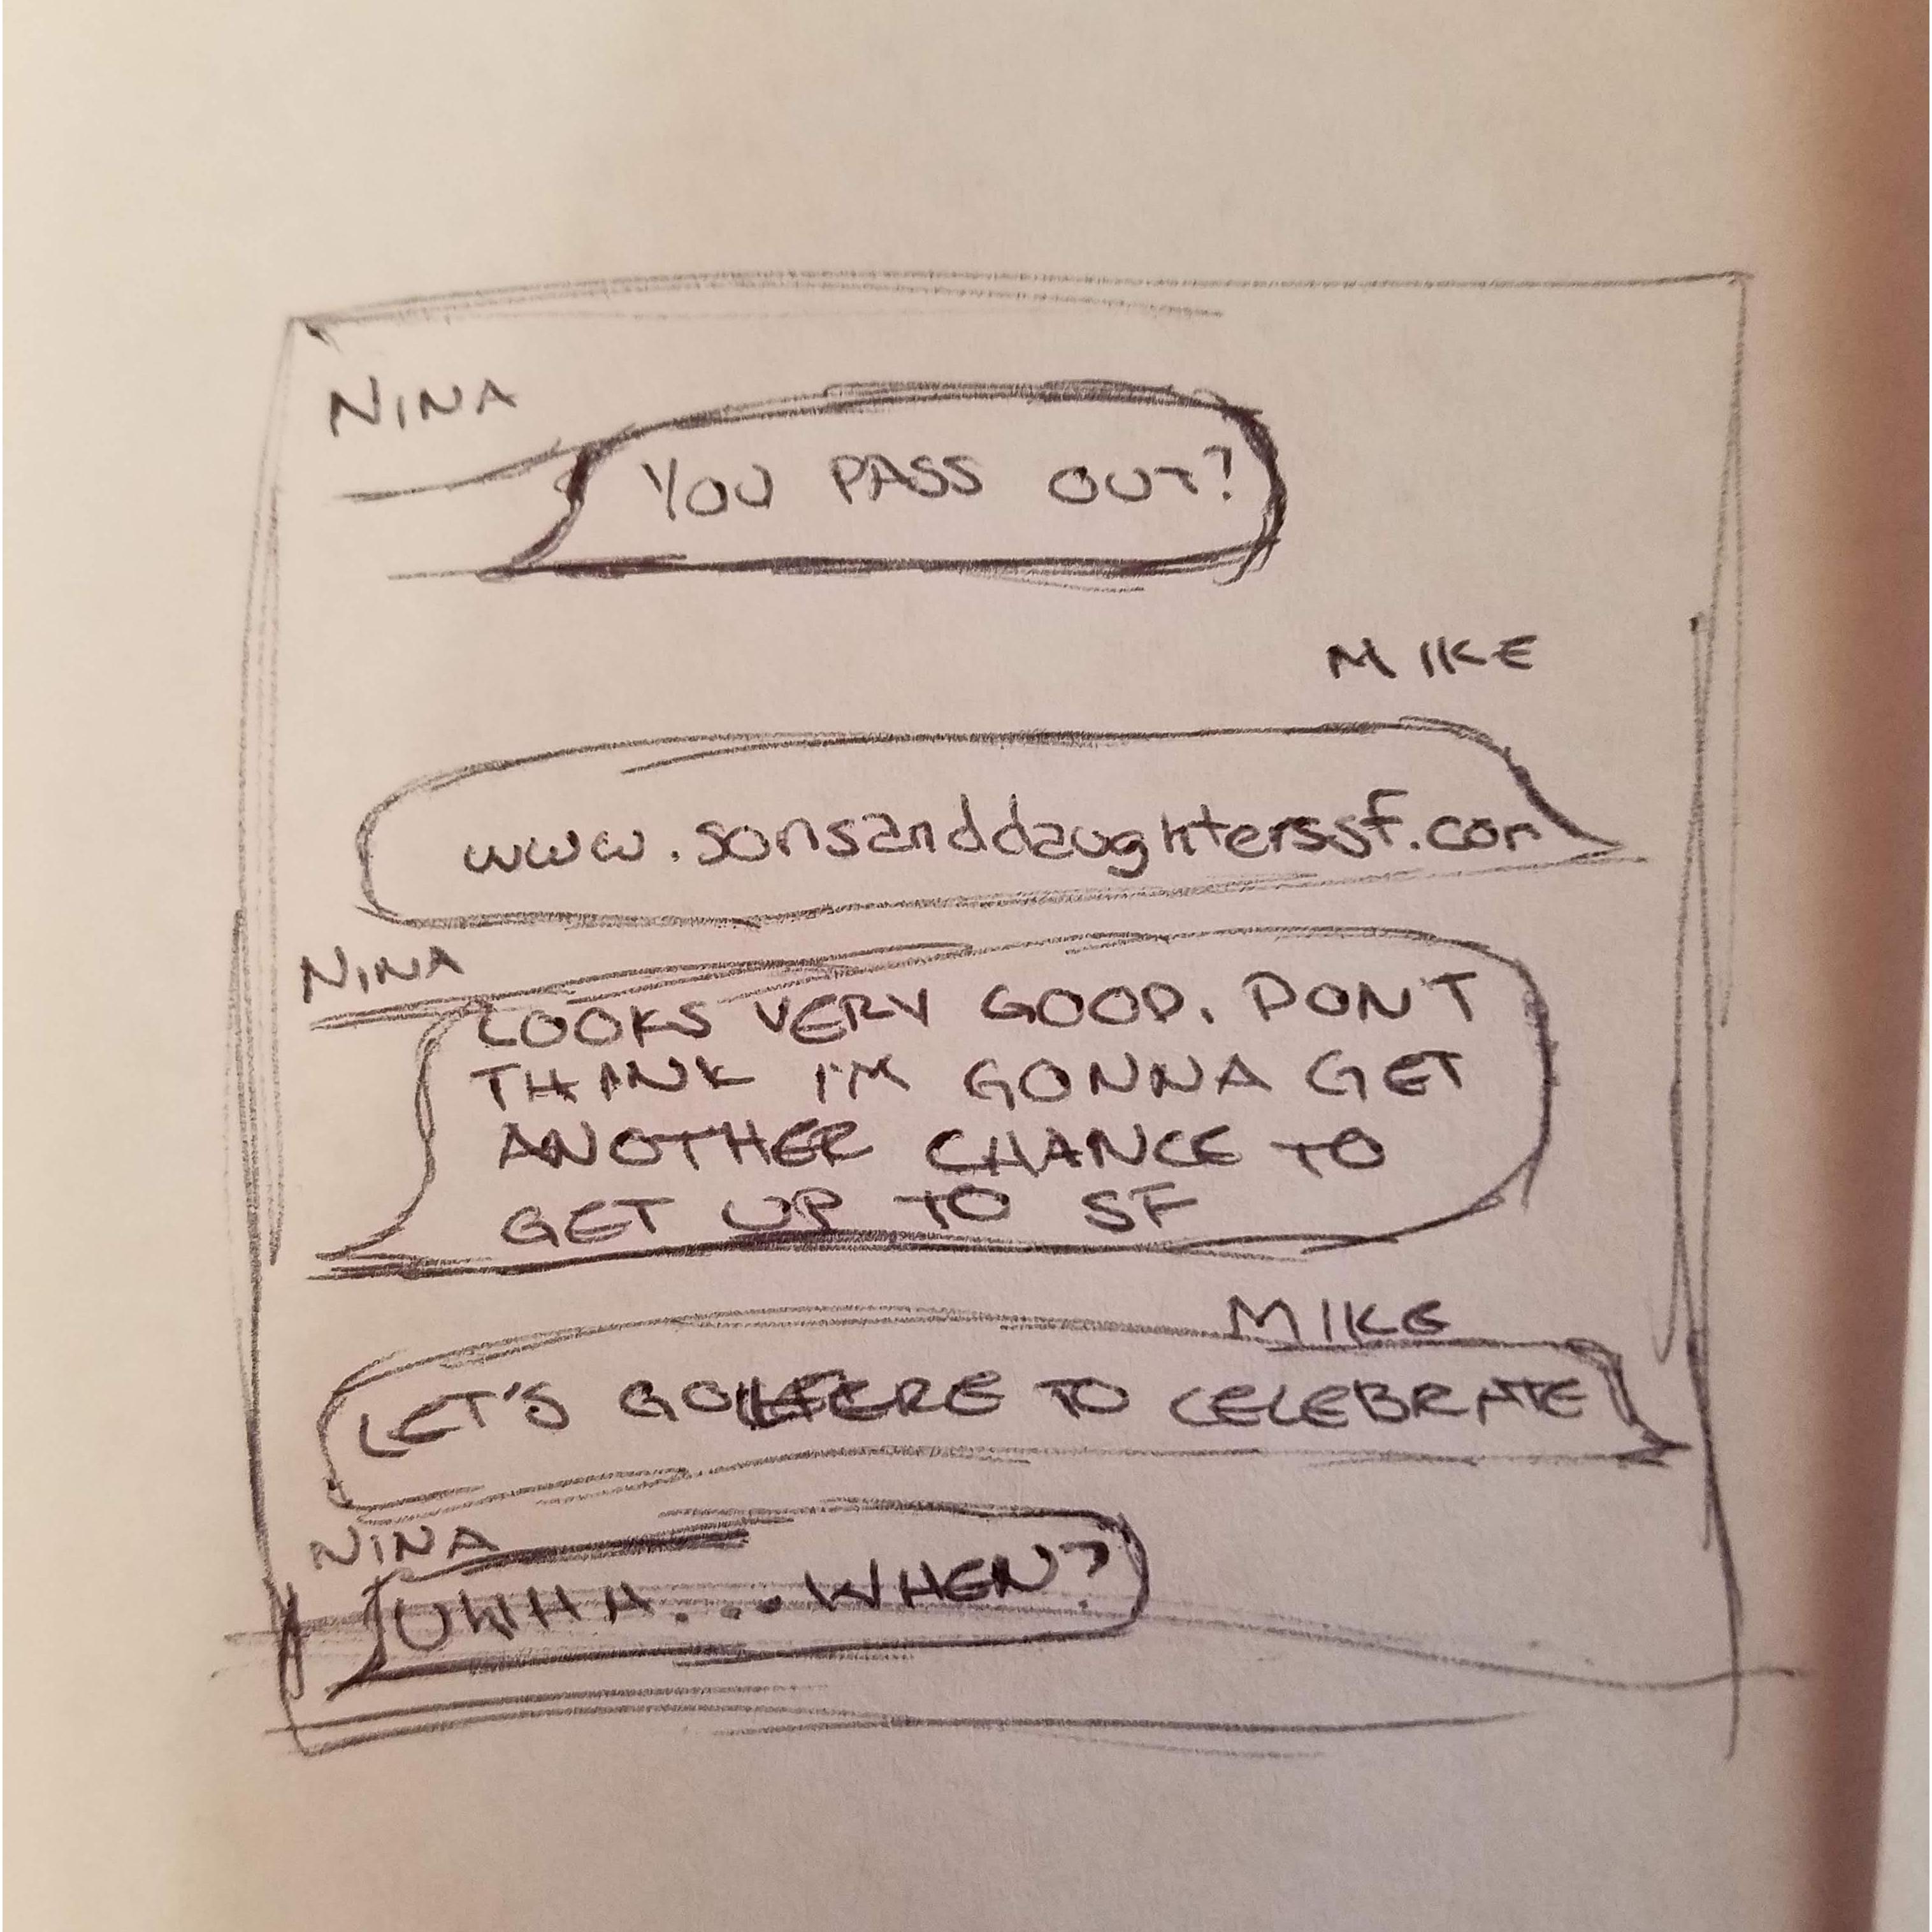 NINA
YOU PASS OUT?
MIKE
www.sonsanddaughterssf.com
NINA
LOOKS VERY GOOD. DON'T
THINK I'M GONNA GET
ANOTHER CHANCE TO
GET UP TO SF
MIKE
LET'S GO HERE TO CELEBRATE
NINA
UHHH... WHEN?